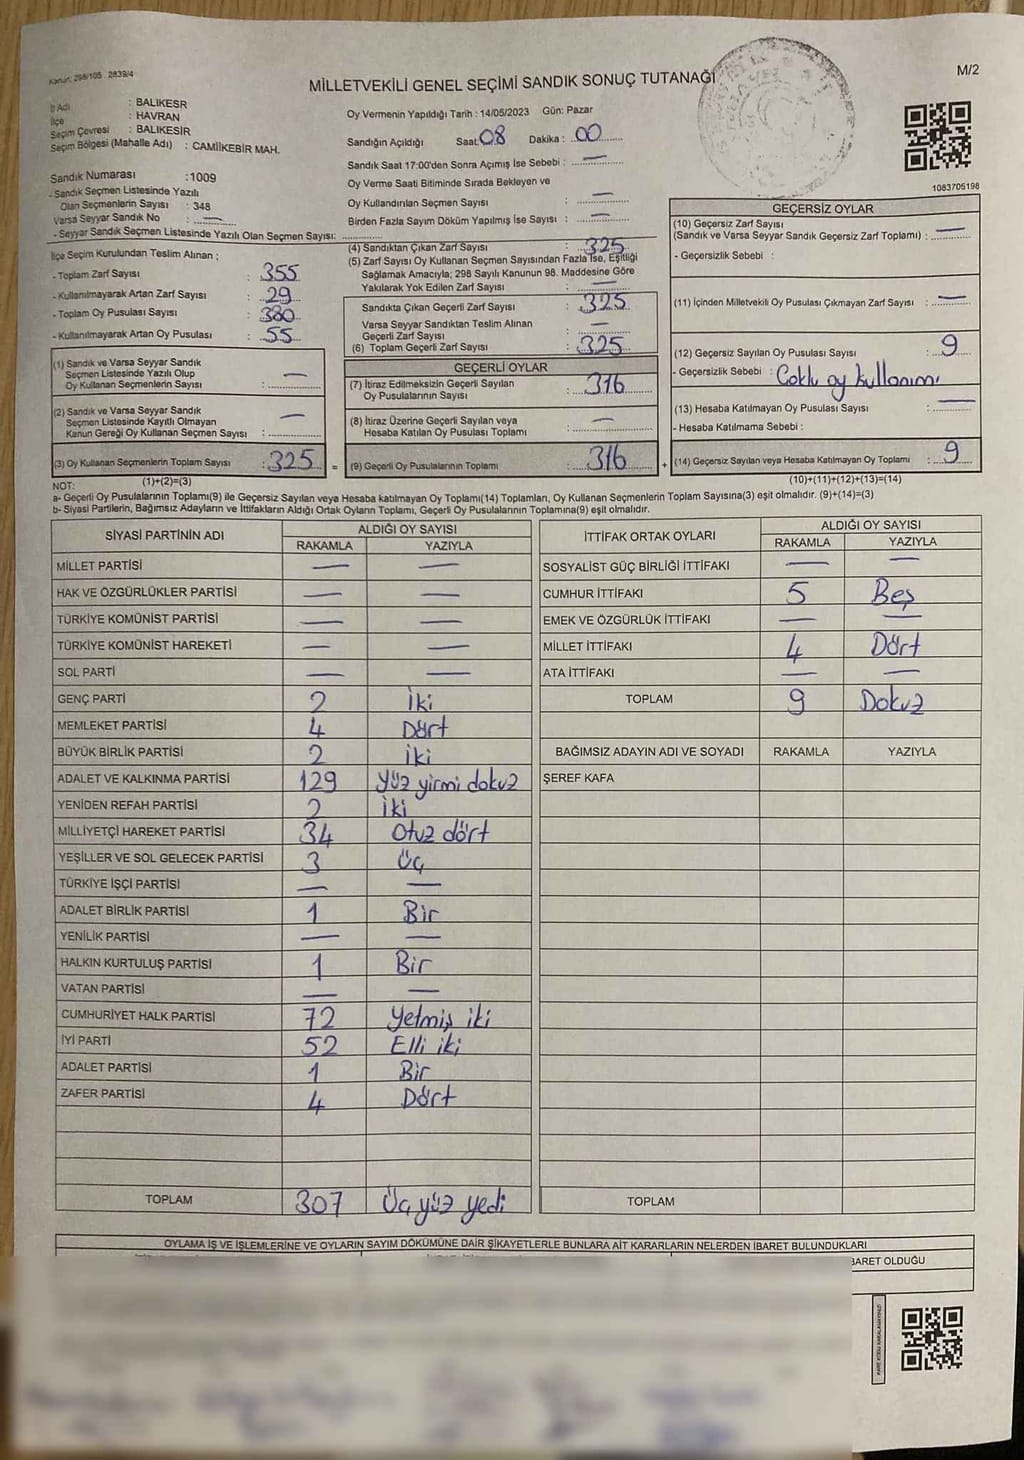 Kanun: 298/105 2839/4
MİLLETVEKİLİ GENEL SEÇİMİ SANDIK SONUÇ TUTANAĞI
M/2
İl Adı : BALIKESR
İlçe : HAVRAN
Seçim Çevresi : BALIKESİR
Seçim Bölgesi (Mahalle Adı) : CAMİİKEBİR MAH.
Sandık Numarası :1009
- Sandık Seçmen Listesinde Yazılı
Olan Seçmenlerin Sayısı : 348
Varsa Seyyar Sandık No : —
- Seyyar Sandık Seçmen Listesinde Yazılı Olan Seçmen Sayısı:
İlçe Seçim Kurulundan Teslim Alınan ;
- Toplam Zarf Sayısı : 355
- Kullanılmayarak Artan Zarf Sayısı : 29
- Toplam Oy Pusulası Sayısı : 380
- Kullanılmayarak Artan Oy Pusulası : 55
(1) Sandık ve Varsa Seyyar Sandık
Seçmen Listesinde Yazılı Olup
Oy Kullanan Seçmenlerin Sayısı : —
(2) Sandık ve Varsa Seyyar Sandık
Seçmen Listesinde Kayıtlı Olmayan
Kanun Gereği Oy Kullanan Seçmen Sayısı : —
(3) Oy Kullanan Seçmenlerin Toplam Sayısı : 325 =
(1)+(2)=(3)
Oy Vermenin Yapıldığı Tarih : 14/05/2023 Gün: Pazar
Sandığın Açıldığı Saat 08 Dakika : 00
Sandık Saat 17:00'den Sonra Açımış İse Sebebi : —
Oy Verme Saati Bitiminde Sırada Bekleyen ve
Oy Kullandırılan Seçmen Sayısı : —
Birden Fazla Sayım Döküm Yapılmış İse Sayısı : —
(4) Sandıktan Çıkan Zarf Sayısı : 325
(5) Zarf Sayısı Oy Kullanan Seçmen Sayısından Fazla İse, Eşitliği
Sağlamak Amacıyla; 298 Sayılı Kanunun 98. Maddesine Göre
Yakılarak Yok Edilen Zarf Sayısı : —
Sandıkta Çıkan Geçerli Zarf Sayısı : 325
Varsa Seyyar Sandıktan Teslim Alınan
Geçerli Zarf Sayısı : —
(6) Toplam Geçerli Zarf Sayısı : 325
GEÇERLİ OYLAR
(7) İtiraz Edilmeksizin Geçerli Sayılan
Oy Pusulalarının Sayısı : 316
(8) İtiraz Üzerine Geçerli Sayılan veya
Hesaba Katılan Oy Pusulası Toplamı : —
(9) Geçerli Oy Pusulalarının Toplamı : 316 +
1083705198
GEÇERSİZ OYLAR
(10) Geçersiz Zarf Sayısı
(Sandık ve Varsa Seyyar Sandık Geçersiz Zarf Toplamı) : —
- Geçersizlik Sebebi :
(11) İçinden Milletvekili Oy Pusulası Çıkmayan Zarf Sayısı : —
(12) Geçersiz Sayılan Oy Pusulası Sayısı : 9
- Geçersizlik Sebebi : Çoklu oy kullanımı
(13) Hesaba Katılmayan Oy Pusulası Sayısı : —
- Hesaba Katılmama Sebebi :
(14) Geçersiz Sayılan veya Hesaba Katılmayan Oy Toplamı : 9
(10)+(11)+(12)+(13)=(14)
NOT:
a- Geçerli Oy Pusulalarının Toplamı(9) ile Geçersiz Sayılan veya Hesaba katılmayan Oy Toplamı(14) Toplamları, Oy Kullanan Seçmenlerin Toplam Sayısına(3) eşit olmalıdır. (9)+(14)=(3)
b- Siyasi Partilerin, Bağımsız Adayların ve İttifakların Aldığı Ortak Oyların Toplamı, Geçerli Oy Pusulalarının Toplamına(9) eşit olmalıdır.
SİYASİ PARTİNİN ADI ALDIĞI OY SAYISI
RAKAMLA YAZIYLA
MİLLET PARTİSİ — —
HAK VE ÖZGÜRLÜKLER PARTİSİ — —
TÜRKİYE KOMÜNİST PARTİSİ — —
TÜRKİYE KOMÜNİST HAREKETİ — —
SOL PARTİ — —
GENÇ PARTİ 2 İki
MEMLEKET PARTİSİ 4 Dört
BÜYÜK BİRLİK PARTİSİ 2 İki
ADALET VE KALKINMA PARTİSİ 129 Yüz yirmi dokuz
YENİDEN REFAH PARTİSİ 2 İki
MİLLİYETÇİ HAREKET PARTİSİ 34 Otuz dört
YEŞİLLER VE SOL GELECEK PARTİSİ 3 Üç
TÜRKİYE İŞÇİ PARTİSİ — —
ADALET BİRLİK PARTİSİ 1 Bir
YENİLİK PARTİSİ — —
HALKIN KURTULUŞ PARTİSİ 1 Bir
VATAN PARTİSİ — —
CUMHURİYET HALK PARTİSİ 72 Yetmiş iki
İYİ PARTİ 52 Elli iki
ADALET PARTİSİ 1 Bir
ZAFER PARTİSİ 4 Dört
TOPLAM 307 Üç yüz yedi
İTTİFAK ORTAK OYLARI ALDIĞI OY SAYISI
RAKAMLA YAZIYLA
SOSYALİST GÜÇ BİRLİĞİ İTTİFAKI — —
CUMHUR İTTİFAKI 5 Beş
EMEK VE ÖZGÜRLÜK İTTİFAKI — —
MİLLET İTTİFAKI 4 Dört
ATA İTTİFAKI — —
TOPLAM 9 Dokuz
BAĞIMSIZ ADAYIN ADI VE SOYADI RAKAMLA YAZIYLA
ŞEREF KAFA
TOPLAM
OYLAMA İŞ VE İŞLEMLERİNE VE OYLARIN SAYIM DÖKÜMÜNE DAİR ŞİKAYETLERLE BUNLARA AİT KARARLARIN NELERDEN İBARET BULUNDUKLARI
BARET OLDUĞU